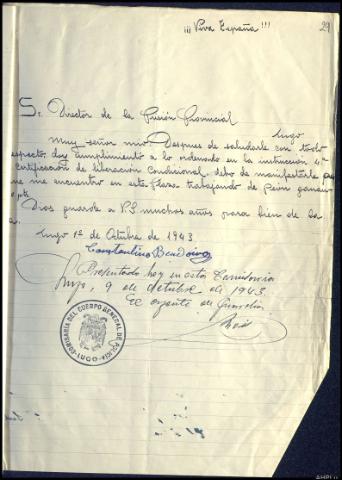 ¡¡¡Viva España!!!
29
Sr. Director de la Prisión Provincial
Lugo
Muy señor mio: Despues de saludarle con todo
espeto, doy cumplimiento a lo ordenado en la instrucción 4ª
certificación de liberación condicional, debo de manifestarle que
me encuentro en esta plaza trabajando de Peon ganan
pts
Dios guarde a V.S. muchos años para bien de la
a.
Lugo 1º de Octubre de 1943
Constantino
Presentado hoy en esta Comisaria
Lugo, 9 de Octubre de 1943.
El agente de Guardia
COMISARIA DEL CUERPO GENERAL DE POLICIA
LUGO
AHPLU